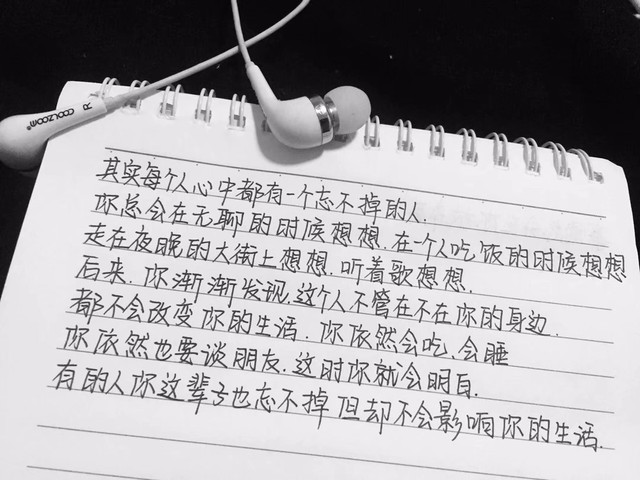 COOLZOOM® R
其实每个人心中都有一个忘不掉的人.
你总会在无聊的时候想想.在一个人吃饭的时候想想
走在夜晚的大街上想想.听着歌想想.
后来.你渐渐发现,这个人不管在不在你的身边.
都不会改变你的生活.你依然会吃.会睡
你依然也要谈朋友.这时你就会明白.
有的人你这辈子也忘不掉但却不会影响你的生活.